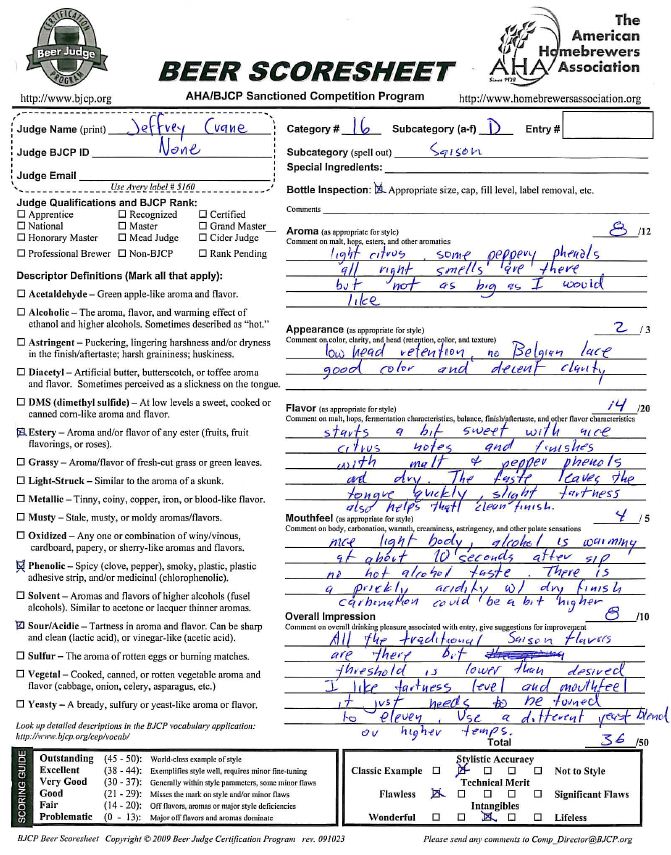 CERTIFICATION
Beer Judge
PROGRAM
http://www.bjcp.org
BEER SCORESHEET
AHA/BJCP Sanctioned Competition Program
AHA
Since 1978
The
American
Homebrewers
Association
http://www.homebrewersassociation.org
Judge Name (print) Jeffrey Crane
Judge BJCP ID None
Judge Email
Use Avery label # 5160
Judge Qualifications and BJCP Rank:
☐ Apprentice ☐ Recognized ☐ Certified
☐ National ☐ Master ☐ Grand Master
☐ Honorary Master ☐ Mead Judge ☐ Cider Judge
☐ Professional Brewer ☐ Non-BJCP ☐ Rank Pending
Descriptor Definitions (Mark all that apply):
☐ Acetaldehyde – Green apple-like aroma and flavor.
☐ Alcoholic – The aroma, flavor, and warming effect of
ethanol and higher alcohols. Sometimes described as "hot."
☐ Astringent – Puckering, lingering harshness and/or dryness
in the finish/aftertaste; harsh graininess; huskiness.
☐ Diacetyl – Artificial butter, butterscotch, or toffee aroma
and flavor. Sometimes perceived as a slickness on the tongue.
☐ DMS (dimethyl sulfide) – At low levels a sweet, cooked or
canned corn-like aroma and flavor.
☒ Estery – Aroma and/or flavor of any ester (fruits, fruit
flavorings, or roses).
☐ Grassy – Aroma/flavor of fresh-cut grass or green leaves.
☐ Light-Struck – Similar to the aroma of a skunk.
☐ Metallic – Tinny, coiny, copper, iron, or blood-like flavor.
☐ Musty – Stale, musty, or moldy aromas/flavors.
☐ Oxidized – Any one or combination of winy/vinous,
cardboard, papery, or sherry-like aromas and flavors.
☒ Phenolic – Spicy (clove, pepper), smoky, plastic, plastic
adhesive strip, and/or medicinal (chlorophenolic).
☐ Solvent – Aromas and flavors of higher alcohols (fusel
alcohols). Similar to acetone or lacquer thinner aromas.
☒ Sour/Acidic – Tartness in aroma and flavor. Can be sharp
and clean (lactic acid), or vinegar-like (acetic acid).
☐ Sulfur – The aroma of rotten eggs or burning matches.
☐ Vegetal – Cooked, canned, or rotten vegetable aroma and
flavor (cabbage, onion, celery, asparagus, etc.)
☐ Yeasty – A bready, sulfury or yeast-like aroma or flavor.
Look up detailed descriptions in the BJCP vocabulary application:
http://www.bjcp.org/cep/vocab/
Category # 16 Subcategory (a-f) D Entry #
Subcategory (spell out) Saison
Special Ingredients:
Bottle Inspection: ☒ Appropriate size, cap, fill level, label removal, etc.
Comments
Aroma (as appropriate for style) 8 /12
Comment on malt, hops, esters, and other aromatics
light citrus, some peppery phenols
all right smells are there
but not as big as I would
like
Appearance (as appropriate for style) 2 / 3
Comment on color, clarity, and head (retention, color, and texture)
low head retention, no Belgian lace
good color and decent clarity
Flavor (as appropriate for style) 14 /20
Comment on malt, hops, fermentation characteristics, balance, finish/aftertaste, and other flavor characteristics
starts a bit sweet with nice
citrus notes and finishes
with malt & pepper phenols
and dry. The taste leaves the
tongue quickly, slight tartness
also helps that clean finish.
Mouthfeel (as appropriate for style) 4 / 5
Comment on body, carbonation, warmth, creaminess, astringency, and other palate sensations
nice light body, alcohol is warming
at about 10 seconds after sip
no hot alcohol taste. There is
a prickly acidity w/ dry finish
carbonation could be a bit higher
Overall Impression 8 /10
Comment on overall drinking pleasure associated with entry, give suggestions for improvement
All the traditional Saison flavors
are there but
threshold is lower than desired
I like tartness level and mouthfeel
it just needs to be turned
to eleven. Use a different yeast blend
or higher temps.
Total 36 /50
SCORING GUIDE
Outstanding (45 - 50): World-class example of style
Excellent (38 - 44): Exemplifies style well, requires minor fine-tuning
Very Good (30 - 37): Generally within style parameters, some minor flaws
Good (21 - 29): Misses the mark on style and/or minor flaws
Fair (14 - 20): Off flavors, aromas or major style deficiencies
Problematic (0 - 13): Major off flavors and aromas dominate
Stylistic Accuracy
Classic Example ☐ ☒ ☐ ☐ ☐ Not to Style
Technical Merit
Flawless ☒ ☐ ☐ ☐ ☐ Significant Flaws
Intangibles
Wonderful ☐ ☐ ☒ ☐ ☐ Lifeless
BJCP Beer Scoresheet Copyright © 2009 Beer Judge Certification Program rev. 091023
Please send any comments to Comp_Director@BJCP.org